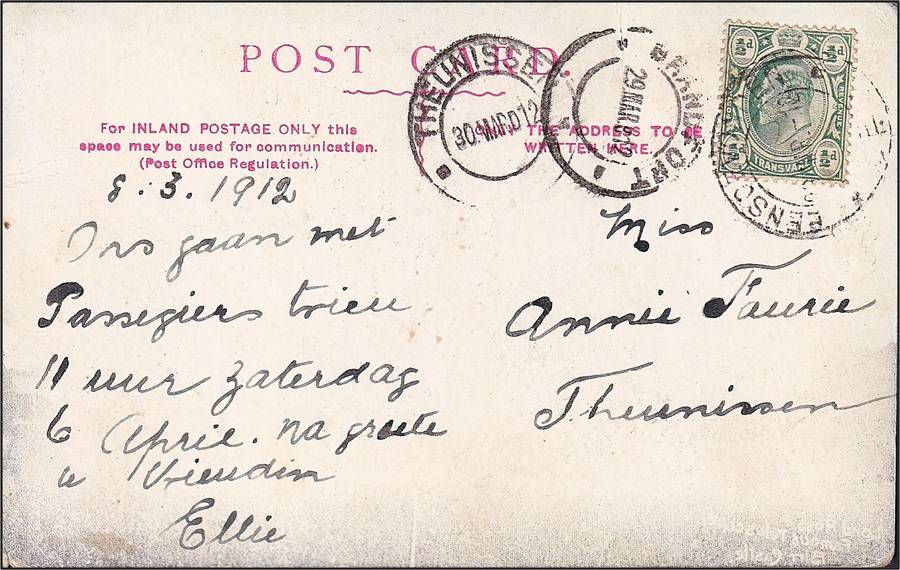 POST CARD.
For INLAND POSTAGE ONLY this
space may be used for communication.
(Post Office Regulation.)
THE ADDRESS TO BE
WRITTEN HERE.
THEUNISSEN
30 MAR 12
BRANDFORT
29 MAR 12
½d ½d
½d ½d
TRANSVAAL
8.3.1912
Ons gaan met
Passegiers trien
11 uur Zaterdag
6 April. na groete
u Vriendin
Ellie
Miss
Annie Faurie
Theunissen